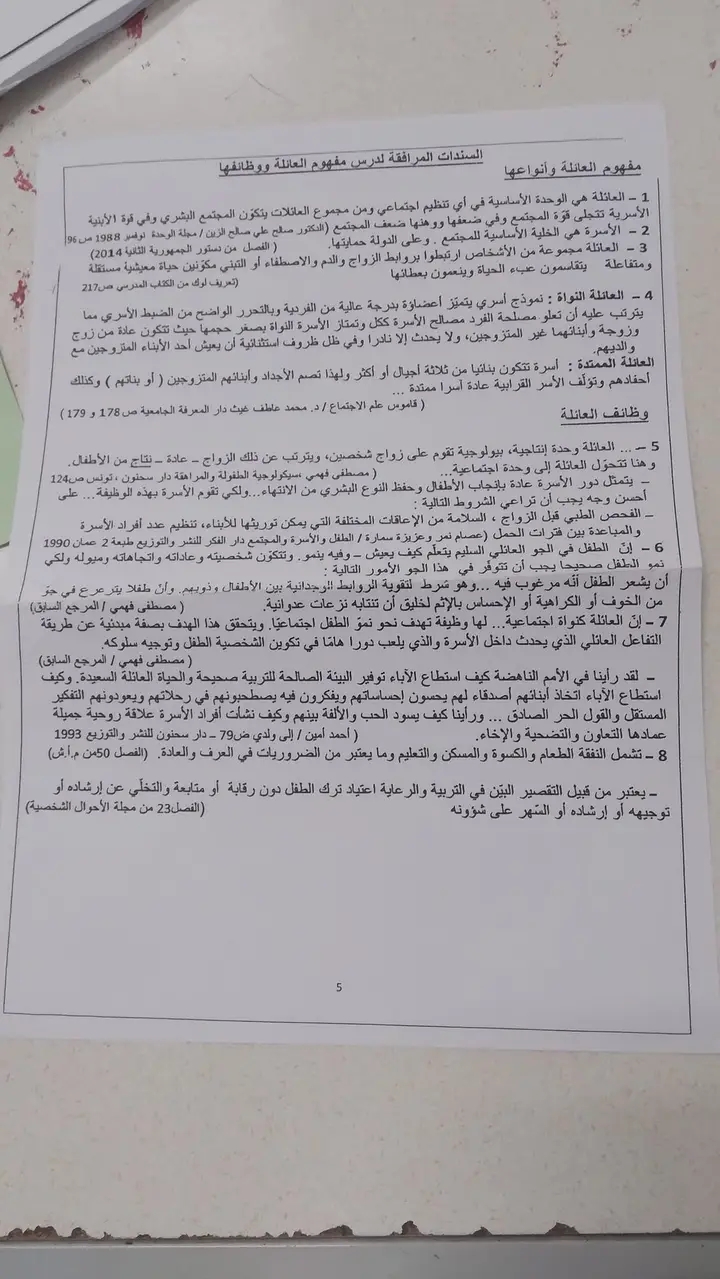 السندات المرافقة لدرس مفهوم العائلة ووظائفها
مفهوم العائلة وأنواعها
1 – العائلة هي الوحدة الأساسية في أي تنظيم اجتماعي ومن مجموع العائلات يتكوّن المجتمع البشري وفي قوة الأبنية
الأسرية تتجلى قوّة المجتمع وفي ضعفها ووهنها ضعف المجتمع (الدكتور صالح علي صالح الزين / مجلة الوحدة نوفمبر 1988 ص96
2 – الأسرة هي الخلية الأساسية للمجتمع . وعلى الدولة حمايتها. ( الفصل من دستور الجمهورية الثانية 2014)
3 – العائلة مجموعة من الأشخاص ارتبطوا بروابط الزواج والدم والاصطفاء أو التبني مكوّنين حياة معيشية مستقلة
ومتفاعلة يتقاسمون عبء الحياة وينعمون بعطائها (تعريف لوك من الكتاب المدرسي ص217
4 – العائلة النواة : نموذج أسري يتميّز أعضاؤه بدرجة عالية من الفردية وبالتحرر الواضح من الضبط الأسري مما
يترتب عليه أن تعلو مصلحة الفرد مصالح الأسرة ككل وتمتاز الأسرة النواة بصغر حجمها حيث تتكون عادة من زوج
وزوجة وأبنائهما غير المتزوجين، ولا يحدث إلا نادرا وفي ظل ظروف استثنائية أن يعيش أحد الأبناء المتزوجين مع
والديهم.
العائلة الممتدة : أسرة تتكون بنائيا من ثلاثة أجيال أو أكثر ولهذا تضم الأجداد وأبنائهم المتزوجين ( أو بناتهم ) وكذلك
أحفادهم وتؤلّف الأسر القرابية عادة أسرا ممتدة ...
( قاموس علم الاجتماع / د. محمد عاطف غيث دار المعرفة الجامعية ص 178 و 179 )
وظائف العائلة
5 – ... العائلة وحدة إنتاجية، بيولوجية تقوم على زواج شخصين، ويترتب عن ذلك الزواج – عادة – نتاج من الأطفال.
وهنا تتحوّل العائلة إلى وحدة اجتماعية... ( مصطفى فهمي ،سيكولوجية الطفولة والمراهقة دار سحنون ، تونس ص124
– يتمثل دور الأسرة عادة بإنجاب الأطفال وحفظ النوع البشري من الانتهاء...ولكي تقوم الأسرة بهذه الوظيفة... على
أحسن وجه يجب أن تراعي الشروط التالية :
– الفحص الطبي قبل الزواج ، السلامة من الإعاقات المختلفة التي يمكن توريثها للأبناء، تنظيم عدد أفراد الأسرة
والمباعدة بين فترات الحمل (عصام نمر وعزيزة سمارة / الطفل والأسرة والمجتمع دار الفكر للنشر والتوزيع طبعة 2 عمان 1990
6 – إنّ الطفل في الجو العائلي السليم يتعلّم كيف يعيش – وفيه ينمو. وتتكوّن شخصيته وعاداته واتجاهاته وميوله ولكي
نمو الطفل صحيحا يجب أن تتوفّر في هذا الجو الأمور التالية :
أن يشعر الطفل أنّه مرغوب فيه ...وهو شرط لتقوية الروابط الوجدانية بين الأطفال وذويهم. وأنّ طفلا يترعرع في جوّ
من الخوف أو الكراهية أو الإحساس بالإثم لخليق أن تنتابه نزعات عدوانية. ( مصطفى فهمي / المرجع السابق)
7 – إنّ العائلة كنواة اجتماعية... لها وظيفة تهدف نحو نموّ الطفل اجتماعيّا. ويتحقق هذا الهدف بصفة مبدئية عن طريقة
التفاعل العائلي الذي يحدث داخل الأسرة والذي يلعب دورا هامّا في تكوين الشخصية الطفل وتوجيه سلوكه.
( مصطفى فهمي / المرجع السابق)
– لقد رأينا في الأمم الناهضة كيف استطاع الآباء توفير البيئة الصالحة للتربية صحيحة والحياة العائلة السعيدة. وكيف
استطاع الآباء اتخاذ أبنائهم أصدقاء لهم يحسون إحساساتهم ويفكرون فيه يصطحبونهم في رحلاتهم ويعودونهم التفكير
المستقل والقول الحر الصادق ... ورأينا كيف يسود الحب والألفة بينهم وكيف نشأت أفراد الأسرة علاقة روحية جميلة
عمادها التعاون والتضحية والإخاء. ( أحمد أمين / إلى ولدي ص79 – دار سحنون للنشر والتوزيع 1993
8 – تشمل النفقة الطعام والكسوة والمسكن والتعليم وما يعتبر من الضروريات في العرف والعادة. (الفصل 50من م.أ.ش)
– يعتبر من قبيل التقصير البيّن في التربية والرعاية اعتياد ترك الطفل دون رقابة أو متابعة والتخلّي عن إرشاده أو
توجيهه أو إرشاده أو السّهر على شؤونه (الفصل23 من مجلة الأحوال الشخصية)
5